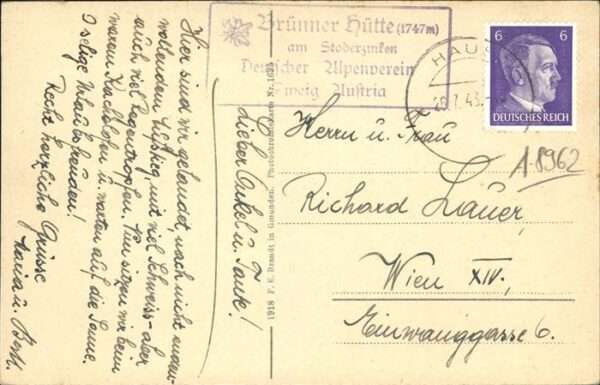 Brünner Hütte (1747m)
am Stoderzinken
Deutscher Alpenverein
Zweig Austria
HAUS
6 6
DEUTSCHES REICH
A 8962
Herrn u. Frau
Richard Lauer,
Wien XIV.,
Einwanggasse 6.
1918 P. E. Brandt in Gmunden.
Lieber Onkel u. Tante!
Hier sind wir gelandet, nach nicht enden-
wollendem Aufstieg mit viel Schweiss - aber
auch viel Regentropfen. Nun sitzen wir beim
warmen Kachelofen u. warten auf die Sonne.
O selige Urlaubsfreuden!
Recht herzliche Grüsse
Maria u.